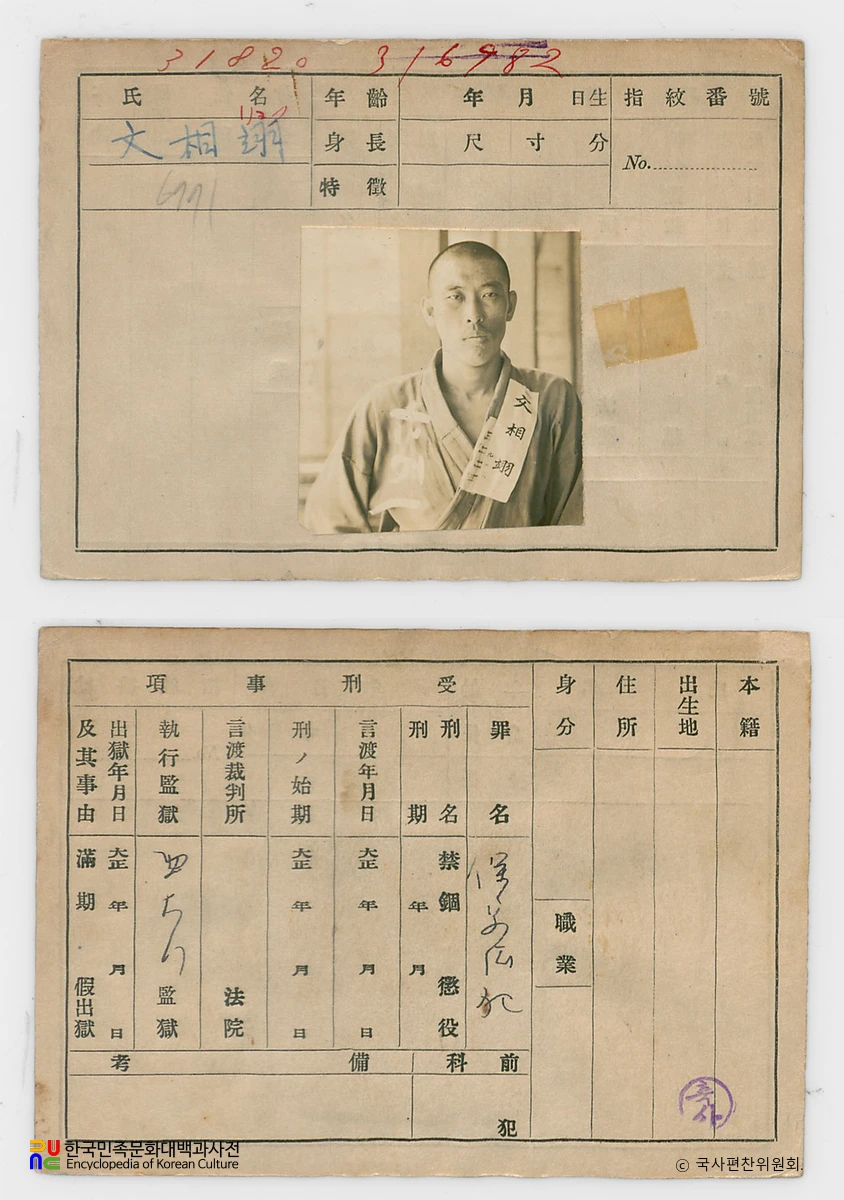 31820 316982
氏名 年齡 年月日生 指紋番號
文相翊 身長 尺寸分 No.
特徵
文相翊
本籍
出生地
住所
身分
職業
受刑事項
罪名 保安法犯
刑名 禁錮 懲役
刑期 年月
言渡年月日 大正 年 月 日
刑ノ始期 大正 年 月 日
言渡裁判所 法院
執行監獄 監獄
出獄年月日 大正 年 月 日
及其事由 滿期 假出獄
前科 犯
備考
한국민족문화대백과사전
Encyclopedia of Korean Culture
© 국사편찬위원회.